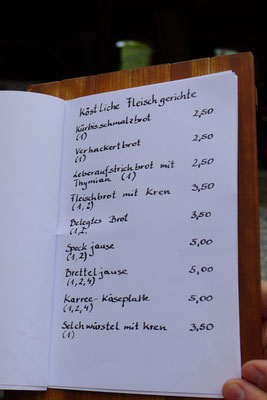 Köstliche Fleischgerichte
Kürbisschmalzbrot 2,50
(1)
Verhackertbrot 2,50
(1)
Leberaufstrichbrot mit 2,50
Thymian (1)
Fleischbrot mit Kren 3,50
(1,2)
Belegtes Brot 3,50
(1,2.
Speckjause 5,00
(1,2)
Bretteljause 5,00
(1,2,4)
Karree-Käseplatte 5,00
(1,2,4)
Selchwürstel mit Kren 3,50
(1)